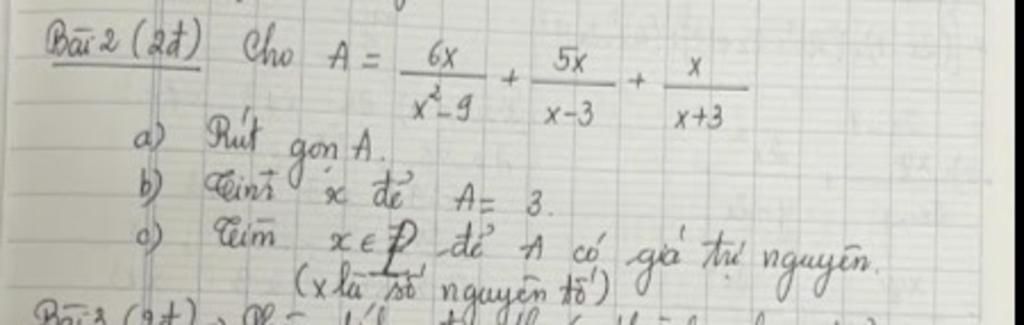 Bài 2 (2đ) Cho A = 6x/(x²-9) + 5x/(x-3) + x/(x+3)
a) Rút gọn A.
b) Tìm x để A = 3.
c) Tìm x ∈ P để A có giá trị nguyên.
(x là số nguyên tố)
Bài 3 (2đ)